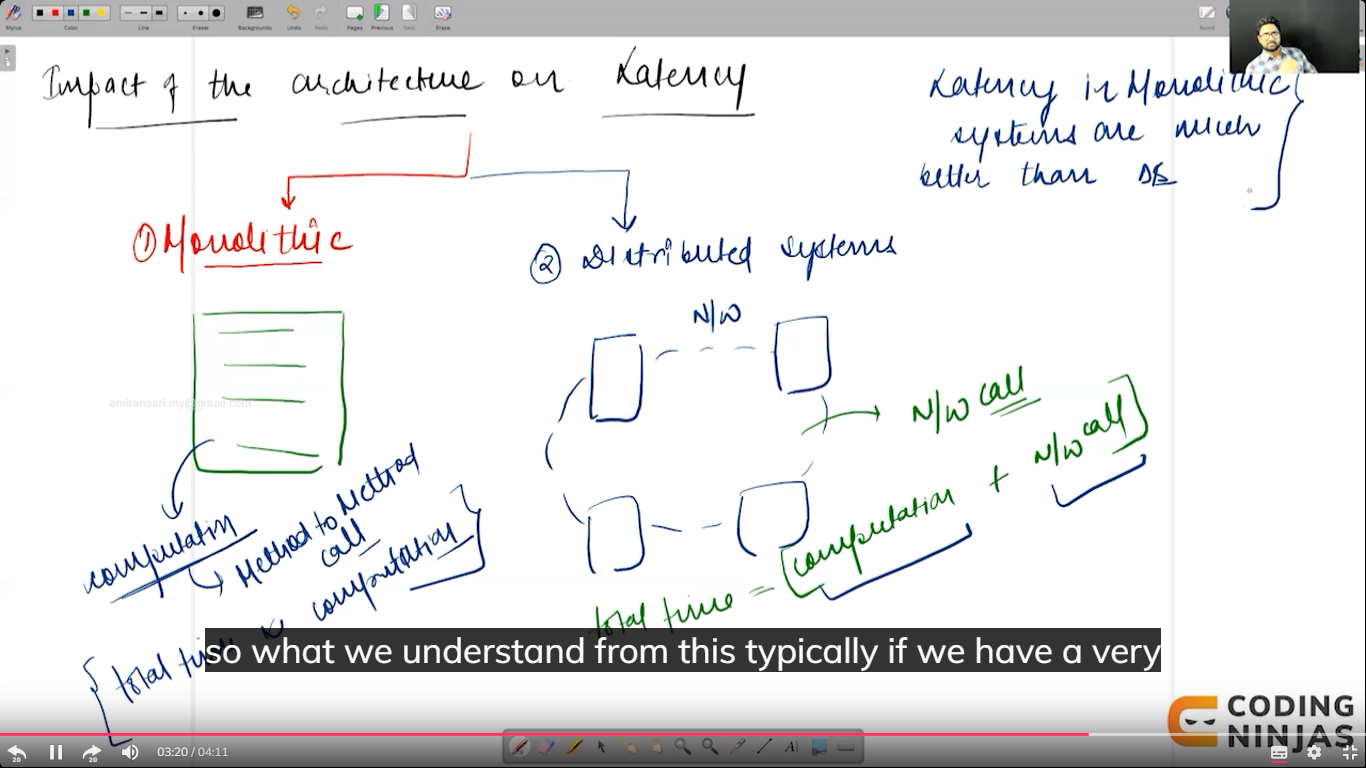 Stylus
Color
Line
Eraser
Backgrounds
Undo
Redo
Pages
Previous
Next
Erase
Board
Impact of the architecture on Latency
Latency in Monolithic
systems are much
better than DS
① Monolithic
② Distributed systems
N/W
amiransari.my@gmail.com
N/W call
computation
Method to Method
call
total time = [computation + N/W call]
total time ∝ computation
so what we understand from this typically if we have a very
CODING
NINJAS
20
20
03:20 / 04:11